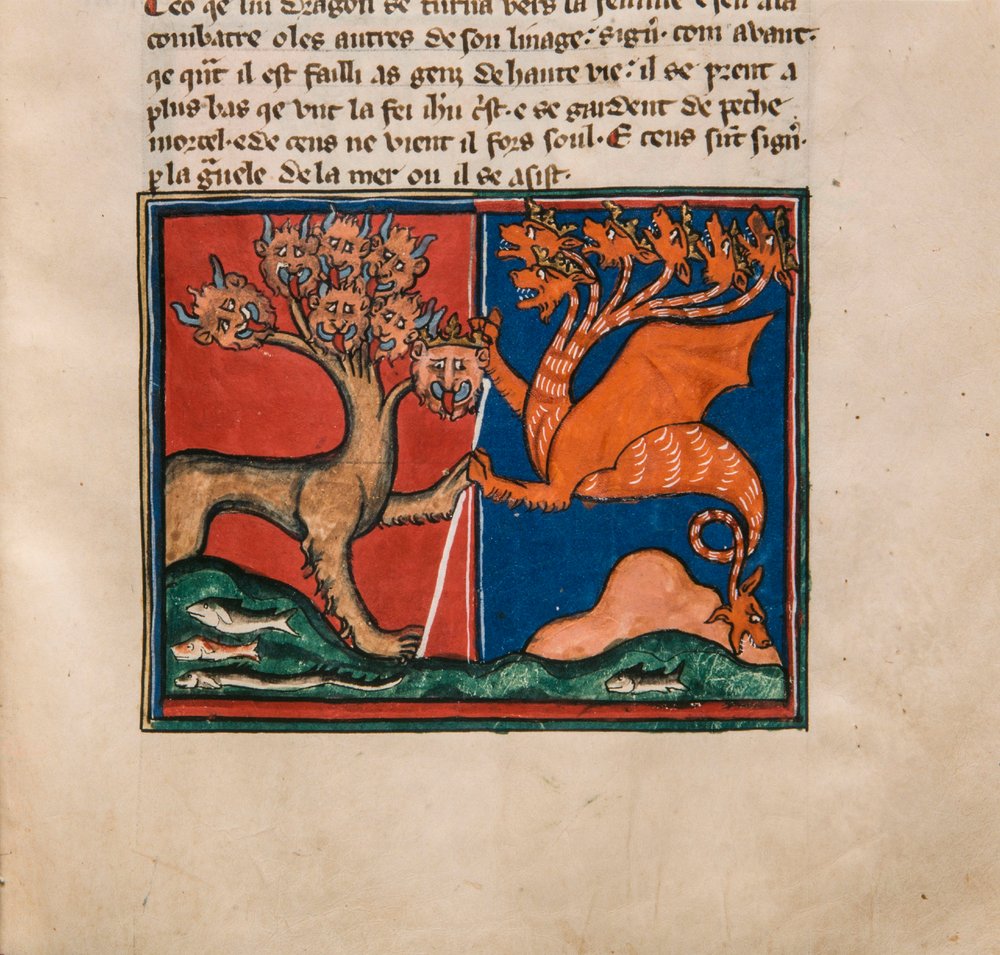 Ceo qe lui dragon se turna vers la femme e sen ala
combatre o les autres de son linage: signi. com avant.
qe qnt il est failli as genz de haute vie: il se prent a
plus bas qe unt la fei ihu crist. e se gardent de peche
mortel. e de ceus ne vient il fors soul. E ceus sunt sign.
p la gvele de la mer ou il se asist.